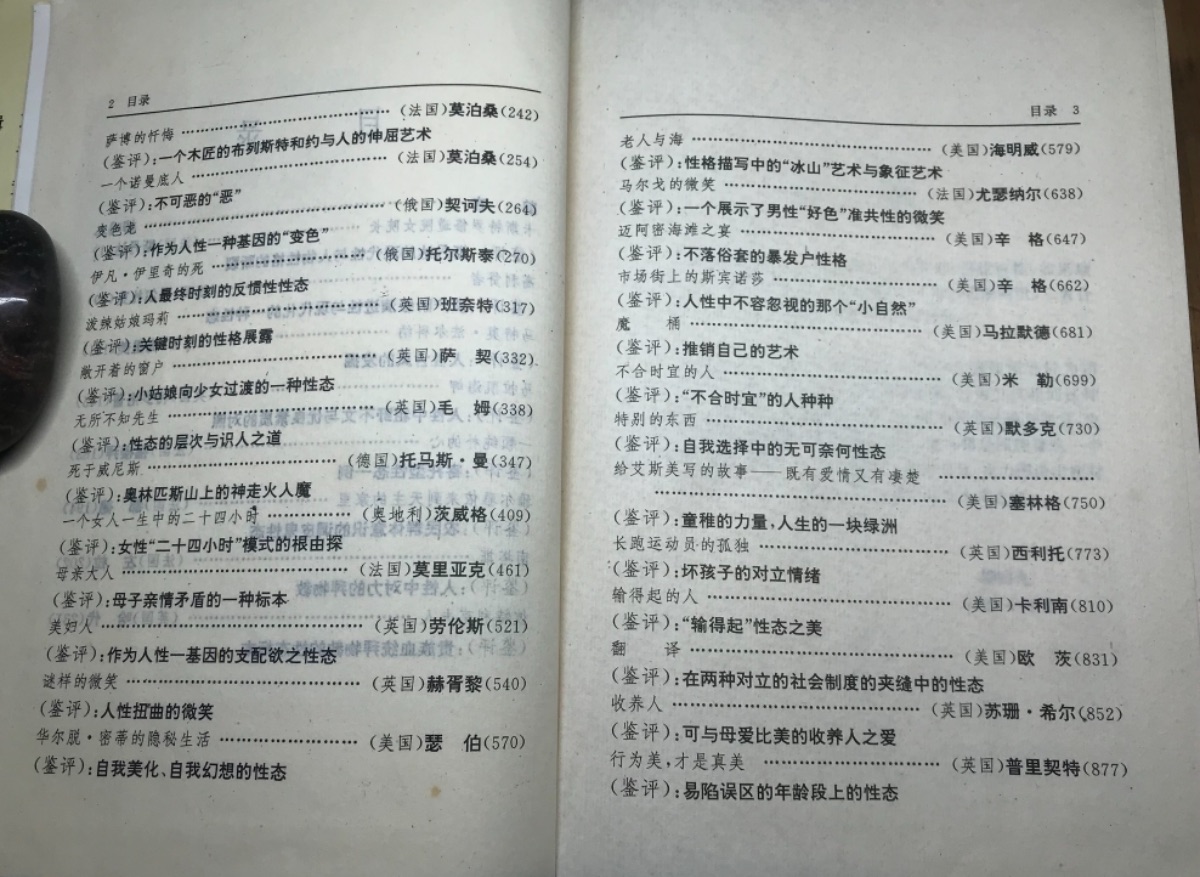 2 目录
萨博的忏悔 ……………………………… (法国)莫泊桑(242)
(鉴评):一个木匠的布列斯特和约与人的伸屈艺术
一个诺曼底人 ……………………………… (法国)莫泊桑(254)
(鉴评):不可恶的“恶”
变色龙 ……………………………… (俄国)契诃夫(264)
(鉴评):作为人性一种基因的“变色”
伊凡·伊里奇的死 ……………………… (俄国)托尔斯泰(270)
(鉴评):人最终时刻的反惯性性态
泼辣姑娘玛莉 ……………………………… (英国)班奈特(317)
(鉴评):关键时刻的性格展露
敞开着的窗户 ……………………………… (英国)萨 契(332)
(鉴评):小姑娘向少女过渡的一种性态
无所不知先生 ……………………………… (英国)毛 姆(338)
(鉴评):性态的层次与识人之道
死于威尼斯 ……………………………… (德国)托马斯·曼(347)
(鉴评):奥林匹斯山上的神走火入魔
一个女人一生中的二十四小时 ……………… (奥地利)茨威格(409)
(鉴评):女性“二十四小时”模式的根由探
母亲大人 ……………………………… (法国)莫里亚克(461)
(鉴评):母子亲情矛盾的一种标本
美妇人 ……………………………… (英国)劳伦斯(521)
(鉴评):作为人性一基因的支配欲之性态
谜样的微笑 ……………………………… (英国)赫胥黎(540)
(鉴评):人性扭曲的微笑
华尔脱·密蒂的隐秘生活 ……………………… (美国)瑟 伯(570)
(鉴评):自我美化、自我幻想的性态
目录 3
老人与海 ……………………………… (美国)海明威(579)
(鉴评):性格描写中的“冰山”艺术与象征艺术
马尔戈的微笑 ……………………………… (法国)尤瑟纳尔(638)
(鉴评):一个展示了男性“好色”准共性的微笑
迈阿密海滩之宴 ……………………………… (美国)辛 格(647)
(鉴评):不落俗套的暴发户性格
市场街上的斯宾诺莎 ……………………………… (美国)辛 格(662)
(鉴评):人性中不容忽视的那个“小自然”
魔 桶 ……………………………… (美国)马拉默德(681)
(鉴评):推销自己的艺术
不合时宜的人 ……………………………… (美国)米 勒(699)
(鉴评):“不合时宜”的人种种
特别的东西 ……………………………… (英国)默多克(730)
(鉴评):自我选择中的无可奈何性态
给艾斯美写的故事——既有爱情又有凄楚 ………………
……………………………… (美国)塞林格(750)
(鉴评):童稚的力量,人生的一块绿洲
长跑运动员的孤独 ……………………………… (英国)西利托(773)
(鉴评):坏孩子的对立情绪
输得起的人 ……………………………… (美国)卡利南(810)
(鉴评):“输得起”性态之美
翻 译 ……………………………… (美国)欧 茨(831)
(鉴评):在两种对立的社会制度的夹缝中的性态
收养人 ……………………………… (英国)苏珊·希尔(852)
(鉴评):可与母爱比美的收养人之爱
行为美,才是真美 ……………………………… (英国)普里契特(877)
(鉴评):易陷误区的年龄段上的性态